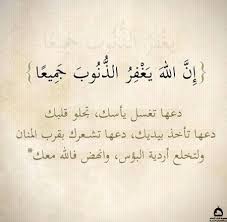 { إِنَّ اللَّهَ يَغْفِرُ الذُّنُوبَ جَمِيعًا }
دعها تغسل يأسك، تجلو قلبك
دعها تأخذ بيديك، دعها تشعرك بقرب المنان
ولتخلع أردية البؤس، وانهض فالله معك*